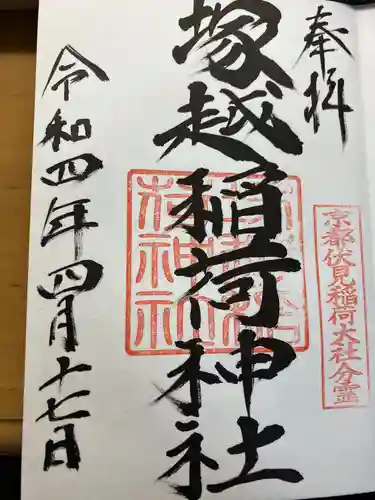 奉拝
京都伏見稲荷大社分霊
塚越稲荷神社
令和四年四月十七日